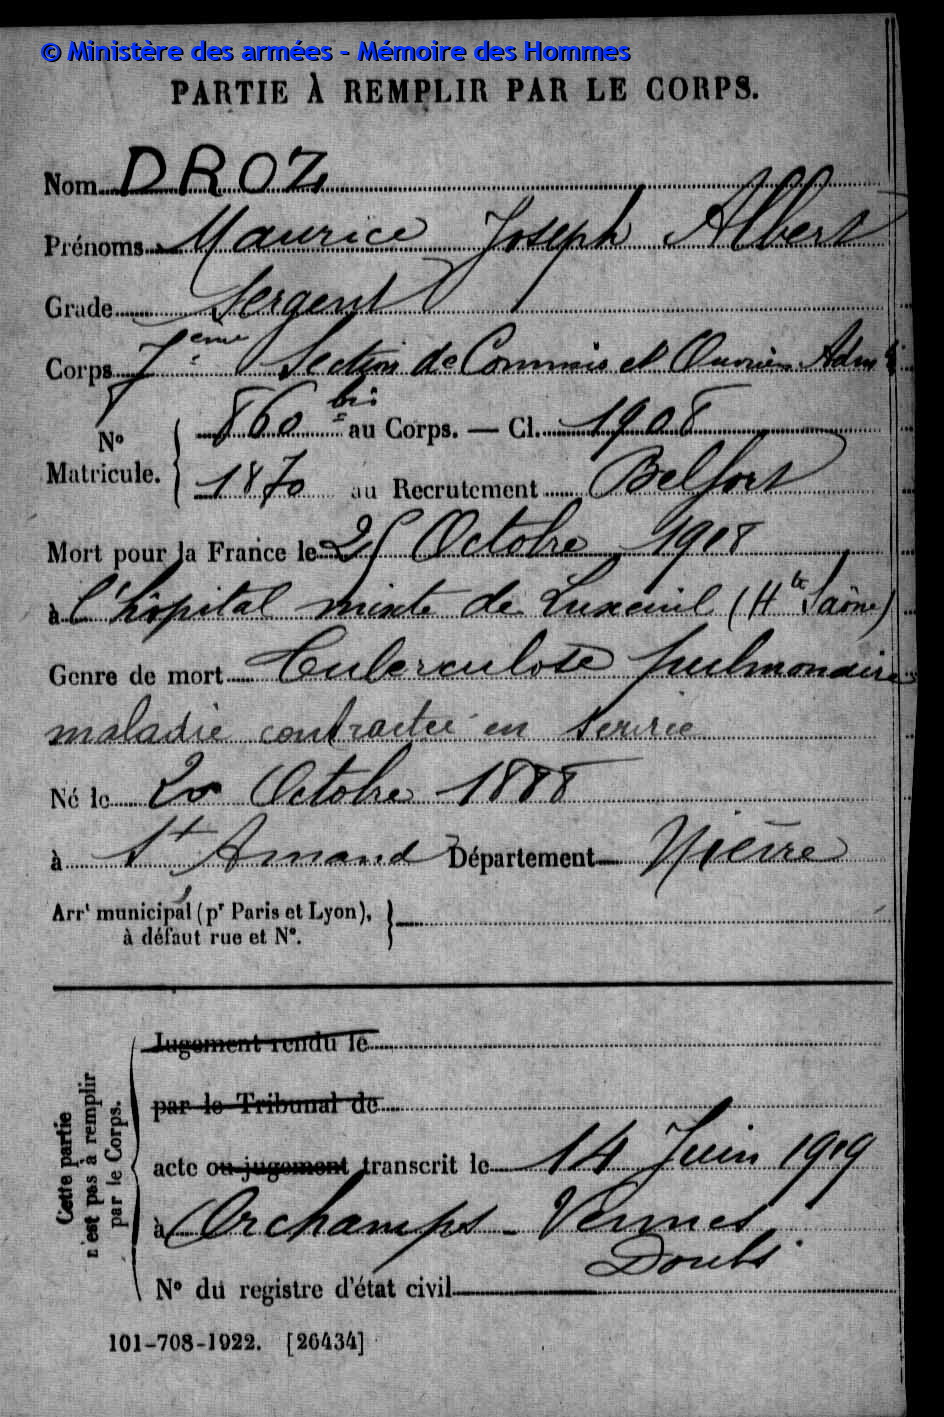 © Ministère des armées - Mémoire des Hommes
PARTIE À REMPLIR PAR LE CORPS.
Nom DROZ
Prénoms Maurice Joseph Albert
Grade Sergent
Corps 7ème Section de Commis et Ouvriers Adm
No Matricule. { 860 bis au Corps. — Cl. 1908
1870 au Recrutement Belfort
Mort pour la France le 25 Octobre 1918
à l'hôpital mixte de Luxeuil (Hte Saône)
Genre de mort Tuberculose pulmonaire
maladie contractée en service
Né le 20 Octobre 1888
à St Amand Département Nièvre
Arrt municipal (pr Paris et Lyon), }
à défaut rue et No.
Cette partie
n'est pas à remplir
par le Corps.
Jugement rendu le
par le Tribunal de
acte ou jugement transcrit le 14 Juin 1919
à Orchamps-Vennes
Doubs
No du registre d'état civil
101-708-1922. [26434]